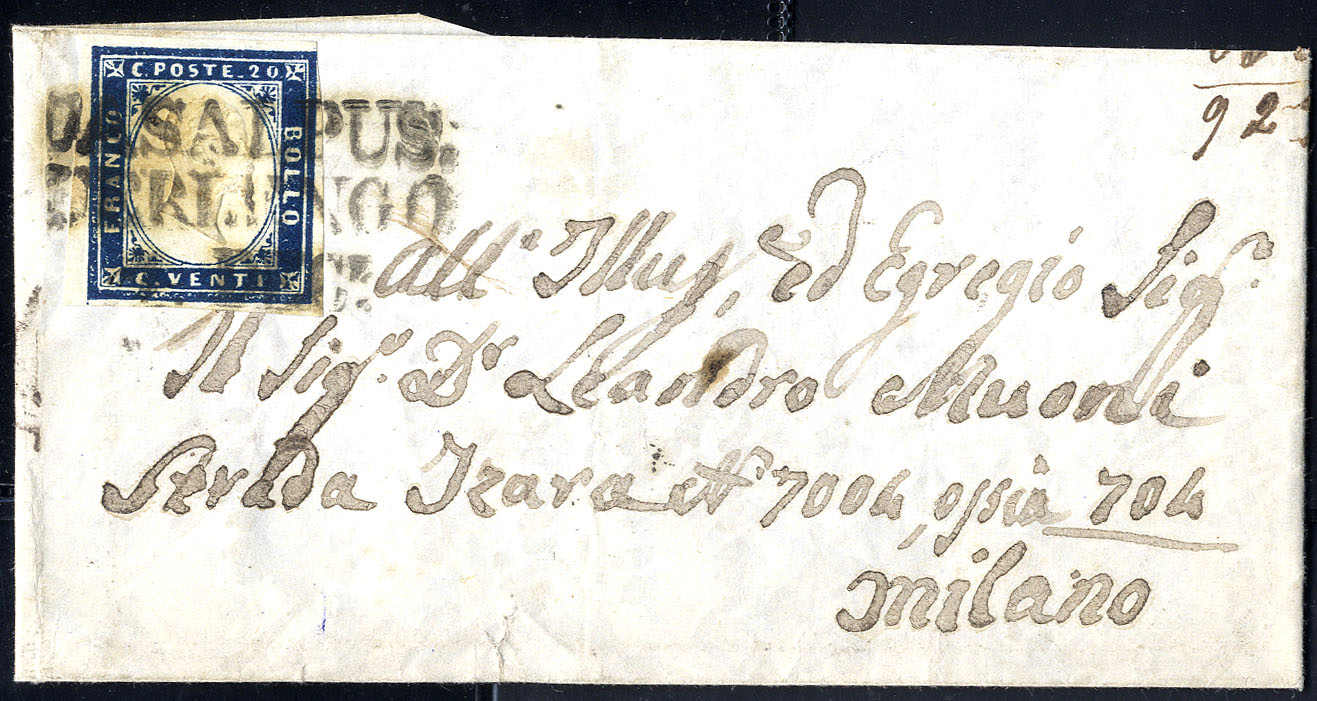 C. POSTE. 20
FRANCO
BOLLO
C. VENTI
PUS.
92
all' Illus, ed Egregio Sigr.
Il Sigr. Dr Leandro Muoni
Izara N° 7004, ossia 704
Milano